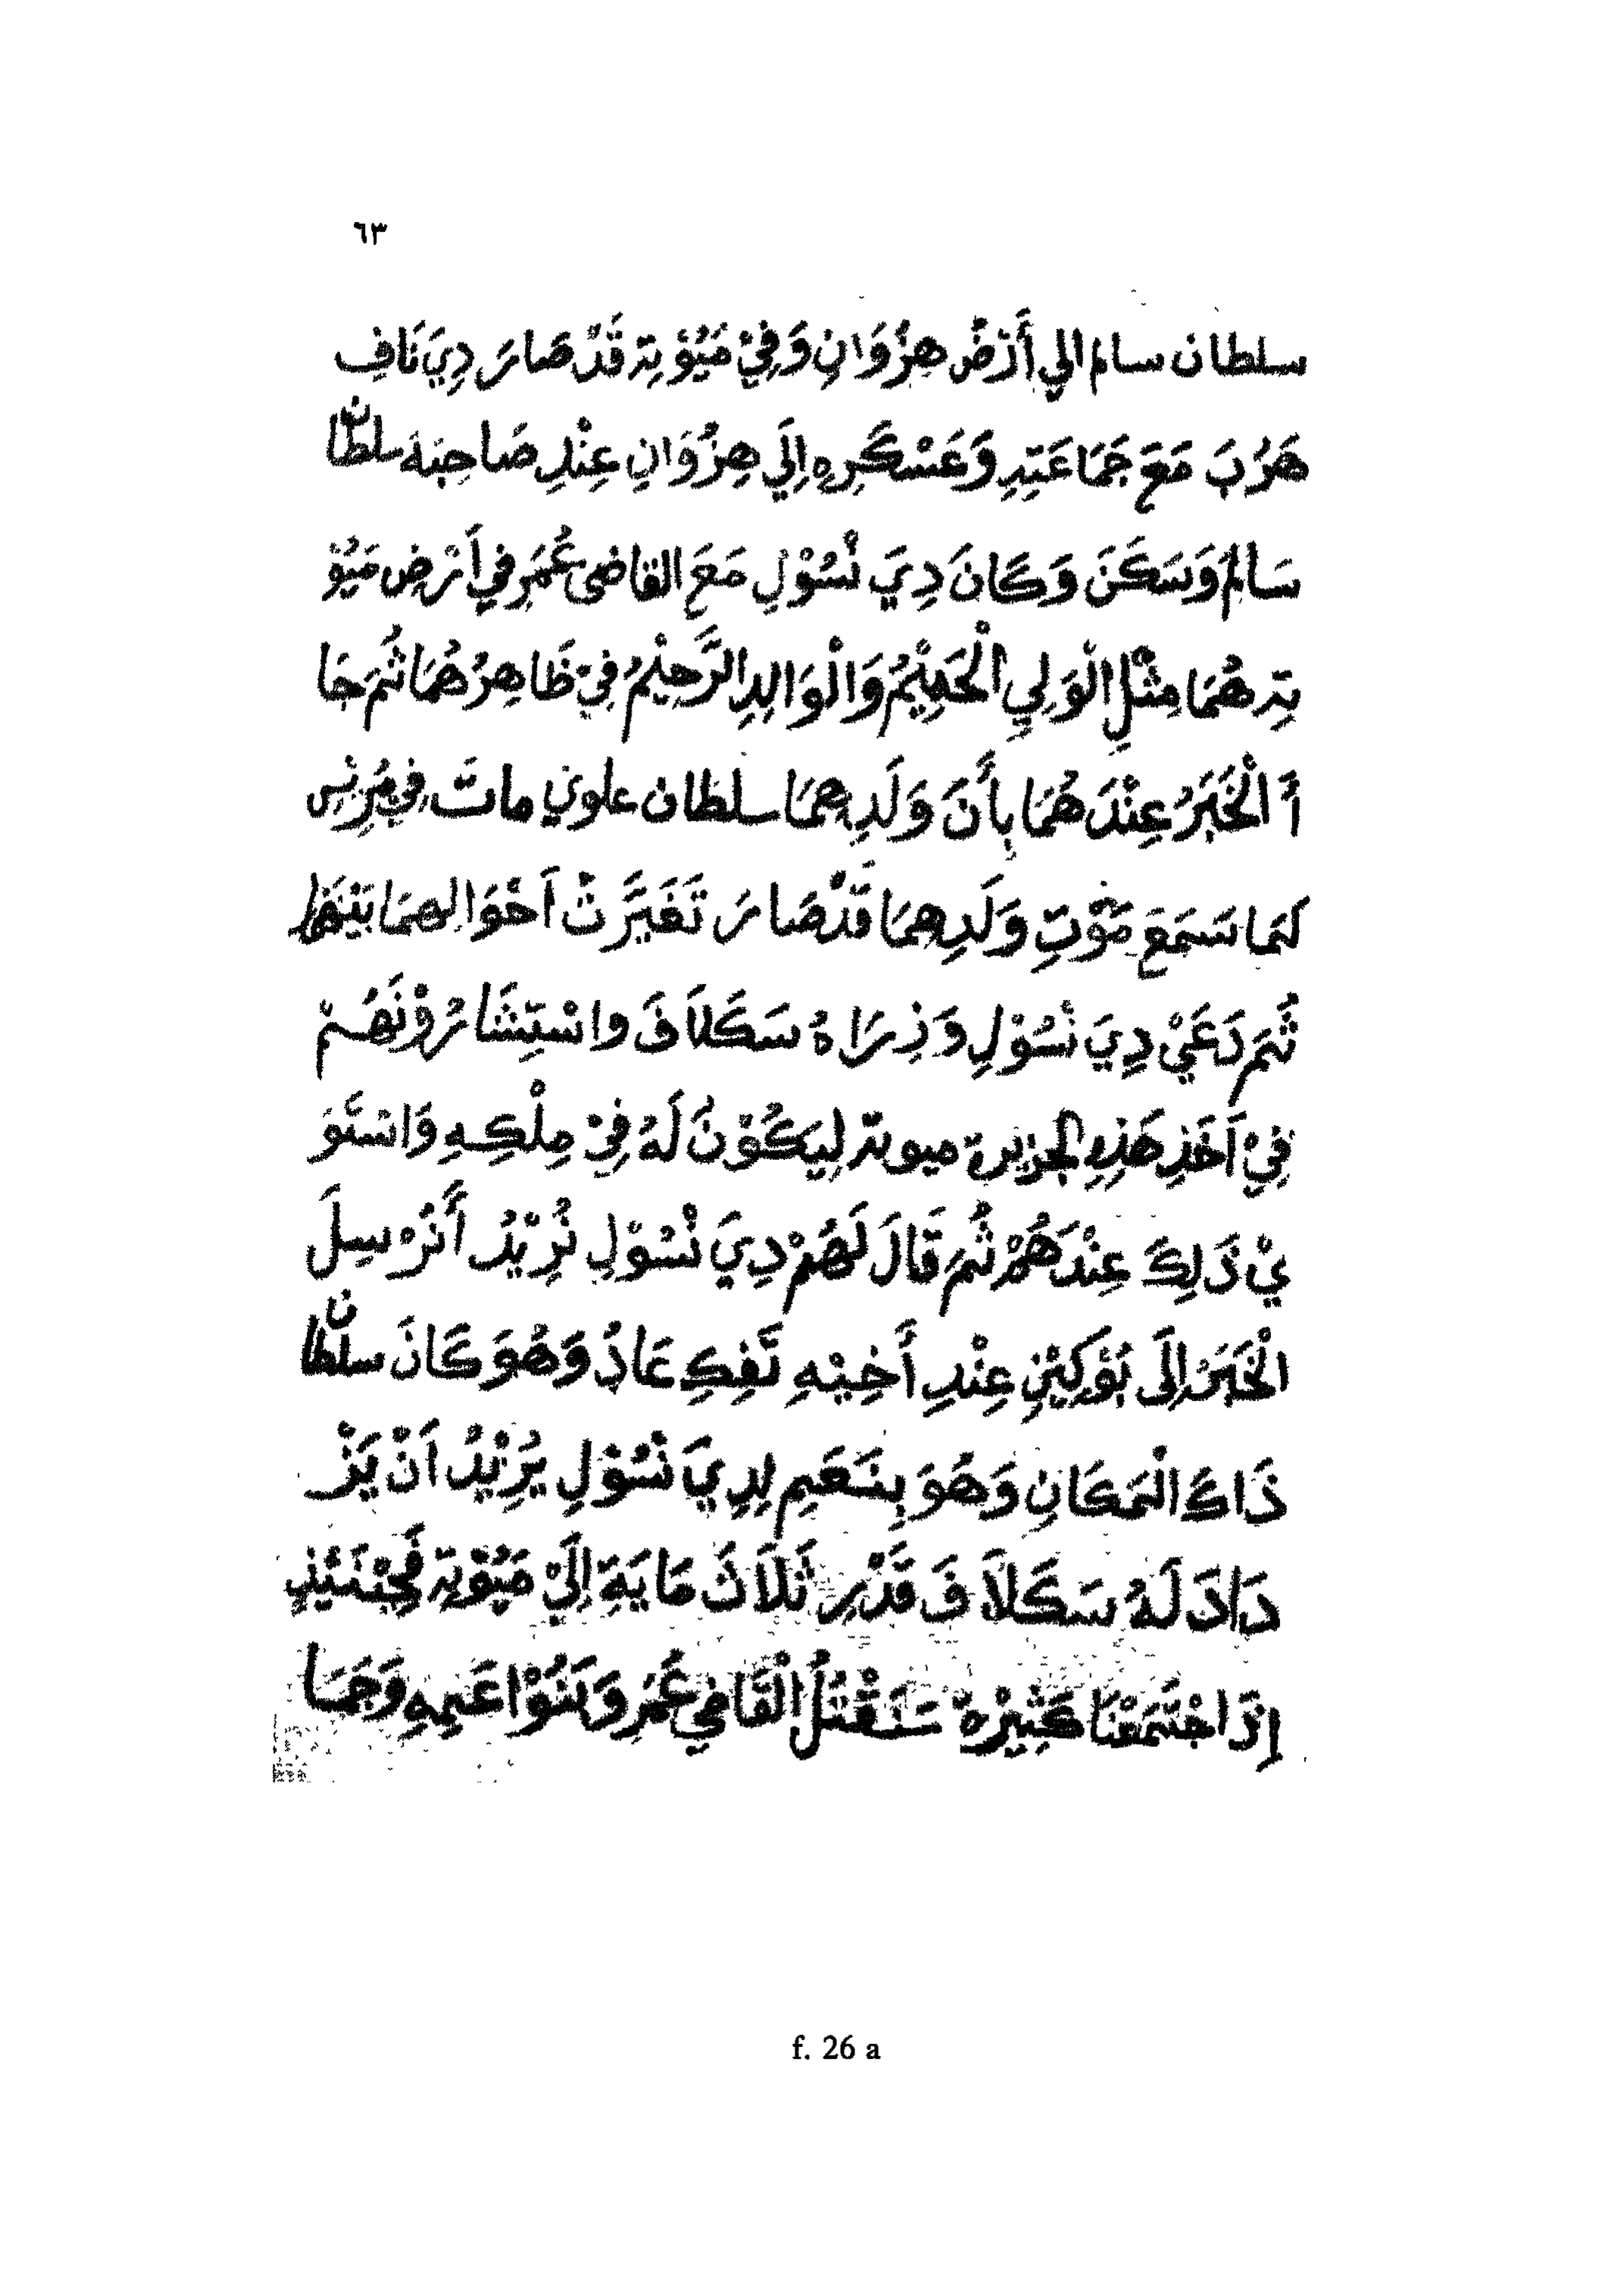 ٦٣
سلطان سالم الي أَرْضُ هِزُوَانِ وَفِيْ مَيُوْتِة قَدْ صَارَ دِيَ نَافِ
هَرُبَ مَعَ جَمَاعَتِهِ وَعَسْكَرِهِ إِلَي هِزُوَانِ عِنْدِ صَاحِبَهُ سلطان
سَالِمُ وَسَكَنَ وَكَانَ دِيَ نْسُوْلِ مَعَ القاضى عُمَرِ في اَرْضِ مَيُوْ
تِة هُمَا مِثْلِ الْوَلِيِ الْحَمِيْمُ وَالْوَالِدِ الرَّحِيْمُ فِيْ ظَاهِرُهُمَا ثُمَ جَا
أَ الْخَبَرُ عِنْدَهُمَا بِأَنَ وَلَدِهِمَا سلطان علوي ماتَ فِي مُرِنِسِ
لَمَا سَمَعَ مَوْتِ وَلَدِهِمَا قَدْ صَارَ تَغَيَّرَتْ اَحْوَالهمَا بَيْنَهُمَا
ثُمَ دَعَيْ دِيَ نْسُوْلِ وَذِرَاهُ سَكَلَافَ وَاسْتِشَارُوْنَهُمْ
فِيْ اَخَذِ هَذِهِ الجزيرة ميوتة لِيَكُوْنُ لَهُ فِيْ مِلْكِهِ وَاسْتَوَ
يْ ذَلِكَ عِنْدَهُمْ ثُمَ قَالَ لَهُمْ دِيَ نْسُوْلِ نُرِيْدُ أَنُرْسِلَ
الْخَبَرُ إِلَى بُوَكِيْنِ عِنْدِ أَخِيْهِ نَفِكِ عَادُ وَهُوَ كَانَ سلطان
ذَاكَ الْمَكَانِ وَهُوَ بِنَعَمِ لِدِيَ نْسُوْلِ يُرِيْدُ اَنْ يَزْ
دَادَ لَهُ سَكَلَافَ قَدْرِ ثَلَاثَ مَايَةِ إِلَيْ مَيُوْتِة فَحِيْنَئِذٍ
إِذَا جْتَمَعْنَا كَثِيْرَةْ سَنَقْتُلُ الْقَاضِي عُمَرِ وَبَنُوْا عَمِهِ وَجَمَا
f. 26 a